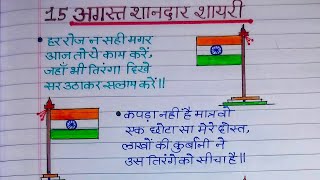 15 अगस्त शानदार शायरी
हर रोज न सही मगर
आज तो ये काम करें,
जहाँ भी तिरंगा दिखे
सर उठाकर सलाम करें॥
कपड़ा नहीं है मात्र वो
एक छोटा सा मेरे दोस्त,
लाखों की कुर्बानी ने
उस तिरंगे को सींचा है॥